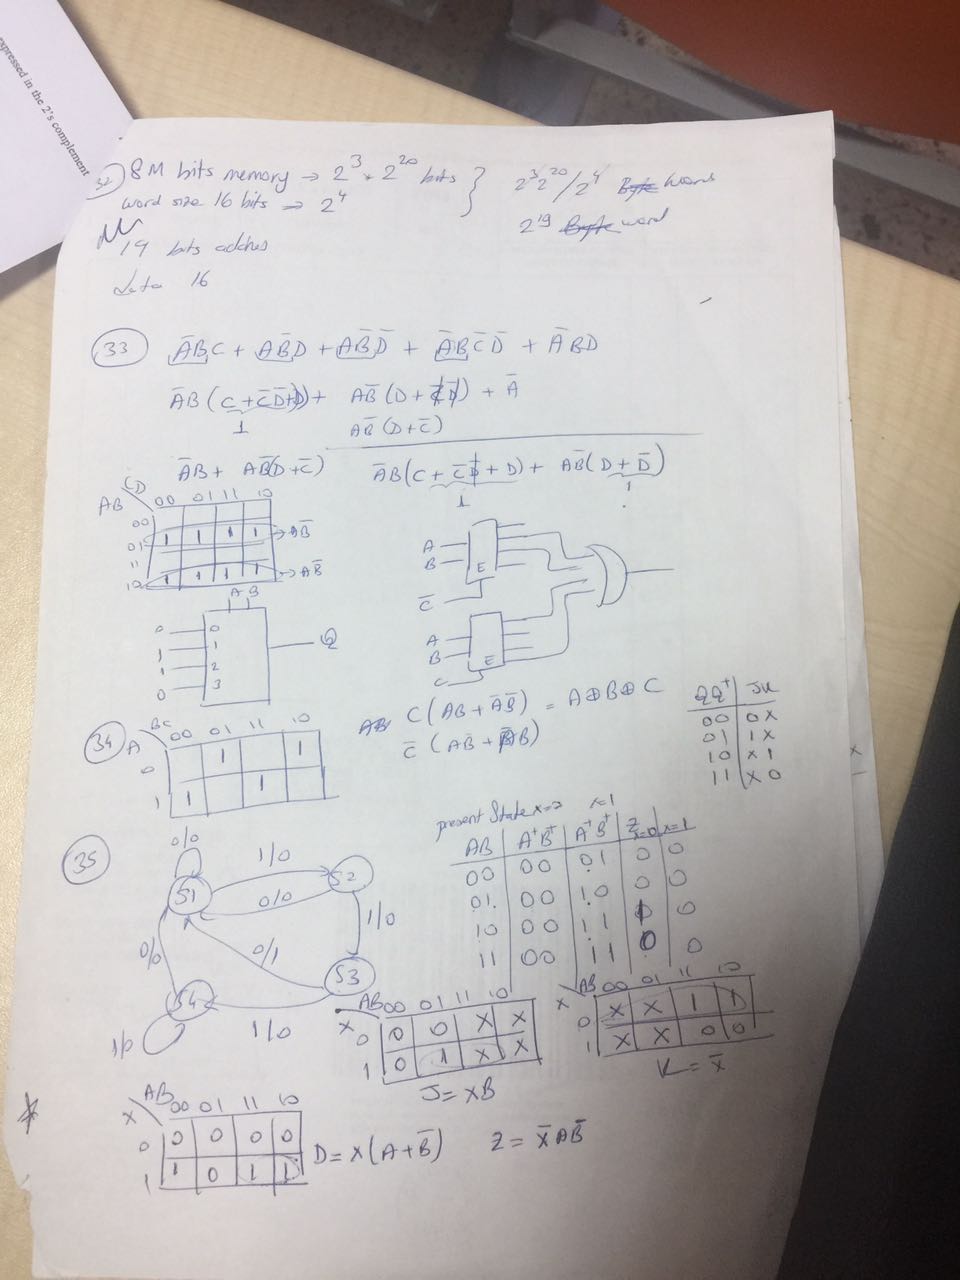 expressed in the 2's complement
32) 8M bits memory → 2³ * 2²⁰ bits } 2³2²⁰/2⁴ Byte Words
word size 16 bits → 2⁴
2¹⁹ Byte word
19 bits addres
data 16
33 A̅BC + AB̅D + AB̅D̅ + A̅BC̅D̅ + A̅BD
A̅B (C + C̅D̅ + D) + AB̅ (D + C̅D̅) + A̅
1
AB̅ (D+C̅)
A̅B + AB̅(D+C̅)
A̅B(C + C̅D̅ + D) + AB̅(D + D̅)
1 1
CD
AB 00 01 11 10
00
01 1 1 1 1 → AB̅
11
10 1 1 1 1 → AB̅
A B
0 0
1 1
1 2
0 3
Q
A
B E
C̅
A
B E
C
34 A BC 00 01 11 10
0 1 1
1 1 1
AB C(AB + A̅B̅) = A⊕B⊕C
C̅ (AB̅ + A̅B)
QQ⁺ JK
00 0X
01 1X
10 X1
11 X0
X
35
0/0
S1 1/0 S2
0/0
1/0
0/0 0/1
S4 S3
1/0 1/0
present State x=0 x=1
AB A⁺B⁺ A⁺B⁺ Z x=0 x=1
00 00 01 0 0
01 00 10 0 0
10 00 11 1 0
11 00 11 0 0
X AB 00 01 11 10
0 0 0 X X
1 0 1 X X
J = XB
X AB 00 01 11 10
0 X X 1 1
1 X X 0 0
K = X̅
X AB 00 01 11 10
0 0 0 0 0
1 1 0 1 1
D = X(A+B̅) Z = X̅AB̅